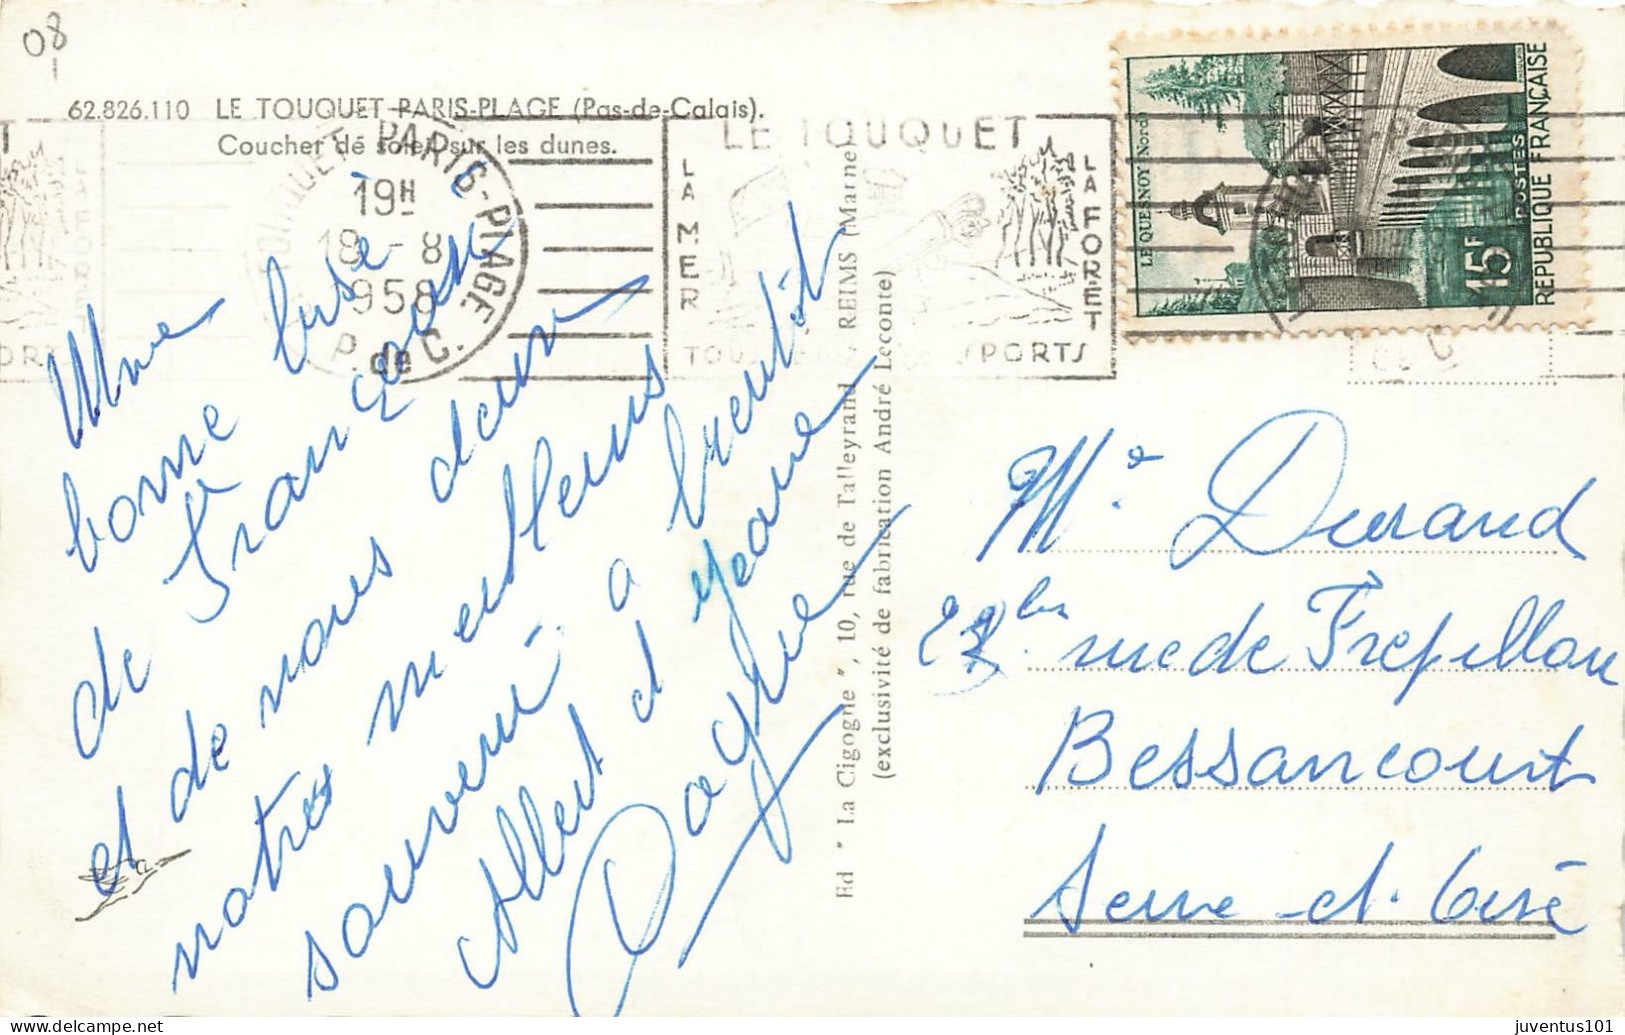 08
62.826.110 LE TOUQUET-PARIS-PLAGE (Pas-de-Calais).
Coucher de soleil sur les dunes.
TOUQUET-PARIS-PLAGE
19H
18 - 8
1958
P. de C.
LE TOUQUET
LA MER
LA FORET
SPORTS
LE QUESNOY (Nord)
POSTES
15F
REPUBLIQUE FRANÇAISE
Une
bonne bise
de Françoise
et de nous deux
notres meilleurs
souvenirs a bientôt
Albert et Jeanne
Ed " La Cigogne ", 10, rue de Talleyrand, REIMS (Marne)
(exclusivité de fabrication André Leconte)
Me Durand
bis rue de Frepillon
Bessancourt
Seine-et-Oise
juventus101